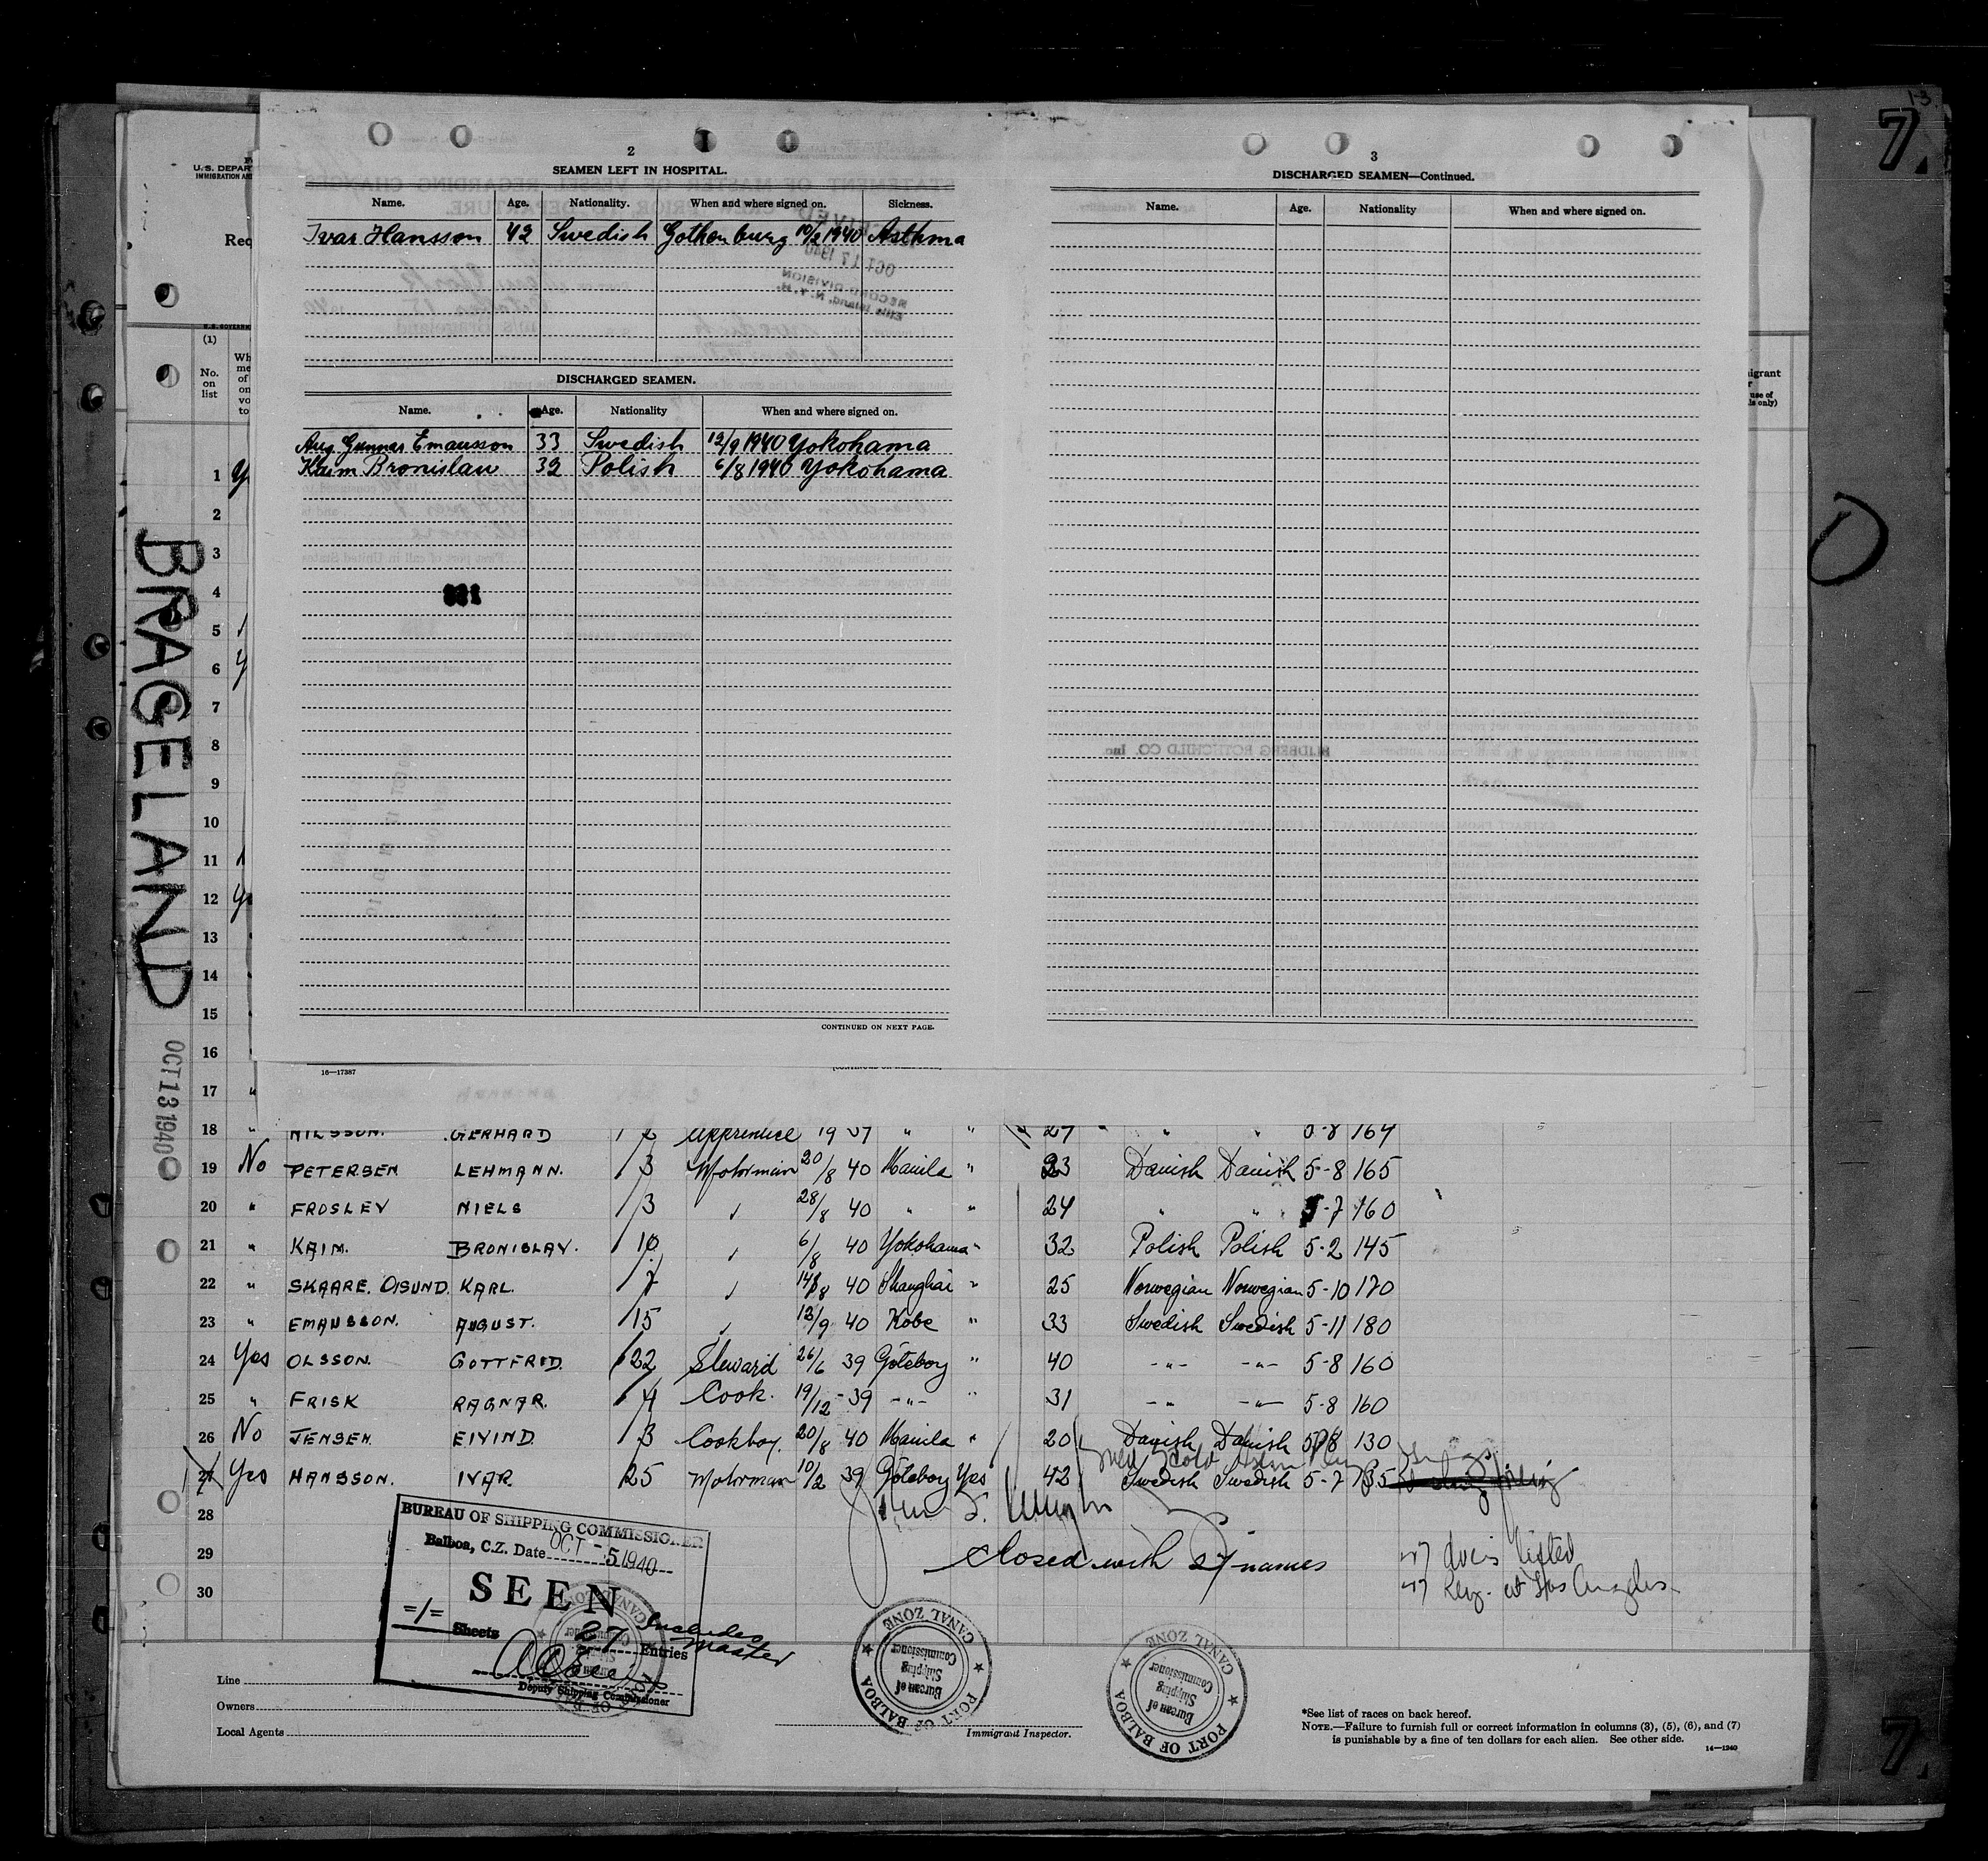 13
7.
2
SEAMEN LEFT IN HOSPITAL.
Name. Age. Nationality. When and where signed on. Sickness.
Ivar Hansson 42 Swedish Gothenburg 10/2 1940 Asthma
DISCHARGED SEAMEN.
Name. Age. Nationality When and where signed on.
Aug. Gunnar Emausson 33 Swedish 12/9 1940 Yokohama
Kaim Bronislaw 32 Polish 6/8 1940 Yokohama
CONTINUED ON NEXT PAGE.
16—17387
3
DISCHARGED SEAMEN—Continued.
Name. Age. Nationality When and where signed on.
U.S. DEPAR
IMMIGRATION AN
Req
(1)
No. on list
BRAGELAND
OCT 13 1940
1
2
3
4
5
6
7
8
9
10
11
12
13
14
15
16
17 "
18 " NILSSON. GERHARD Apprentice 19 37 " " 27 " " 5-8 164
19 No PETERSEN LEHMANN. 3 Motorman 20/8 40 Manila " 23 Danish Danish 5-8 165
20 " FROSLEV NIELS 3 " 28/8 40 " " 24 " " 5-7 160
21 " KAIM. BRONISLAV. 10 " 6/8 40 Yokohama " 32 Polish Polish 5-2 145
22 " SKAARE. OISUND. KARL. 7 " 14/8 40 Shanghai " 25 Norwegian Norwegian 5-10 170
23 " EMAUSSON. AUGUST. 15 " 12/9 40 Kobe " 33 Swedish Swedish 5-11 180
24 Yes OLSSON. GOTTFRID. 22 Steward 26/6 39 Göteborg " 40 -"- -"- 5-8 160
25 " FRISK RAGNAR. 4 Cook. 19/12 - 39 -"- " 31 -"- -"- 5-8 160
26 No JENSEN. EIVIND. 3 Cookboy. 20/8 40 Manila " 20 Danish Danish 5-8 130
27 Yes HANSSON. IVAR. 25 Motorman 10/2 39 Göteborg Yes 42 Swedish Swedish 5-7 135
28
29
30
Closed with 27 names
27 docs listed
27 Reg. at Los Angeles
BUREAU OF SHIPPING COMMISSIONER
Balboa, C.Z. Date OCT - 5 1940
SEEN
=1= Sheets 27 Entries
Includes Master
Deputy Shipping Commissioner
PORT OF BALBOA CANAL ZONE
Bureau of Shipping Commissioner
PORT OF BALBOA CANAL ZONE
Bureau of Shipping Commissioner
Line
Owners
Local Agents
Immigrant Inspector.
*See list of races on back hereof.
NOTE.—Failure to furnish full or correct information in columns (3), (5), (6), and (7)
is punishable by a fine of ten dollars for each alien. See other side.
14—1240
7.